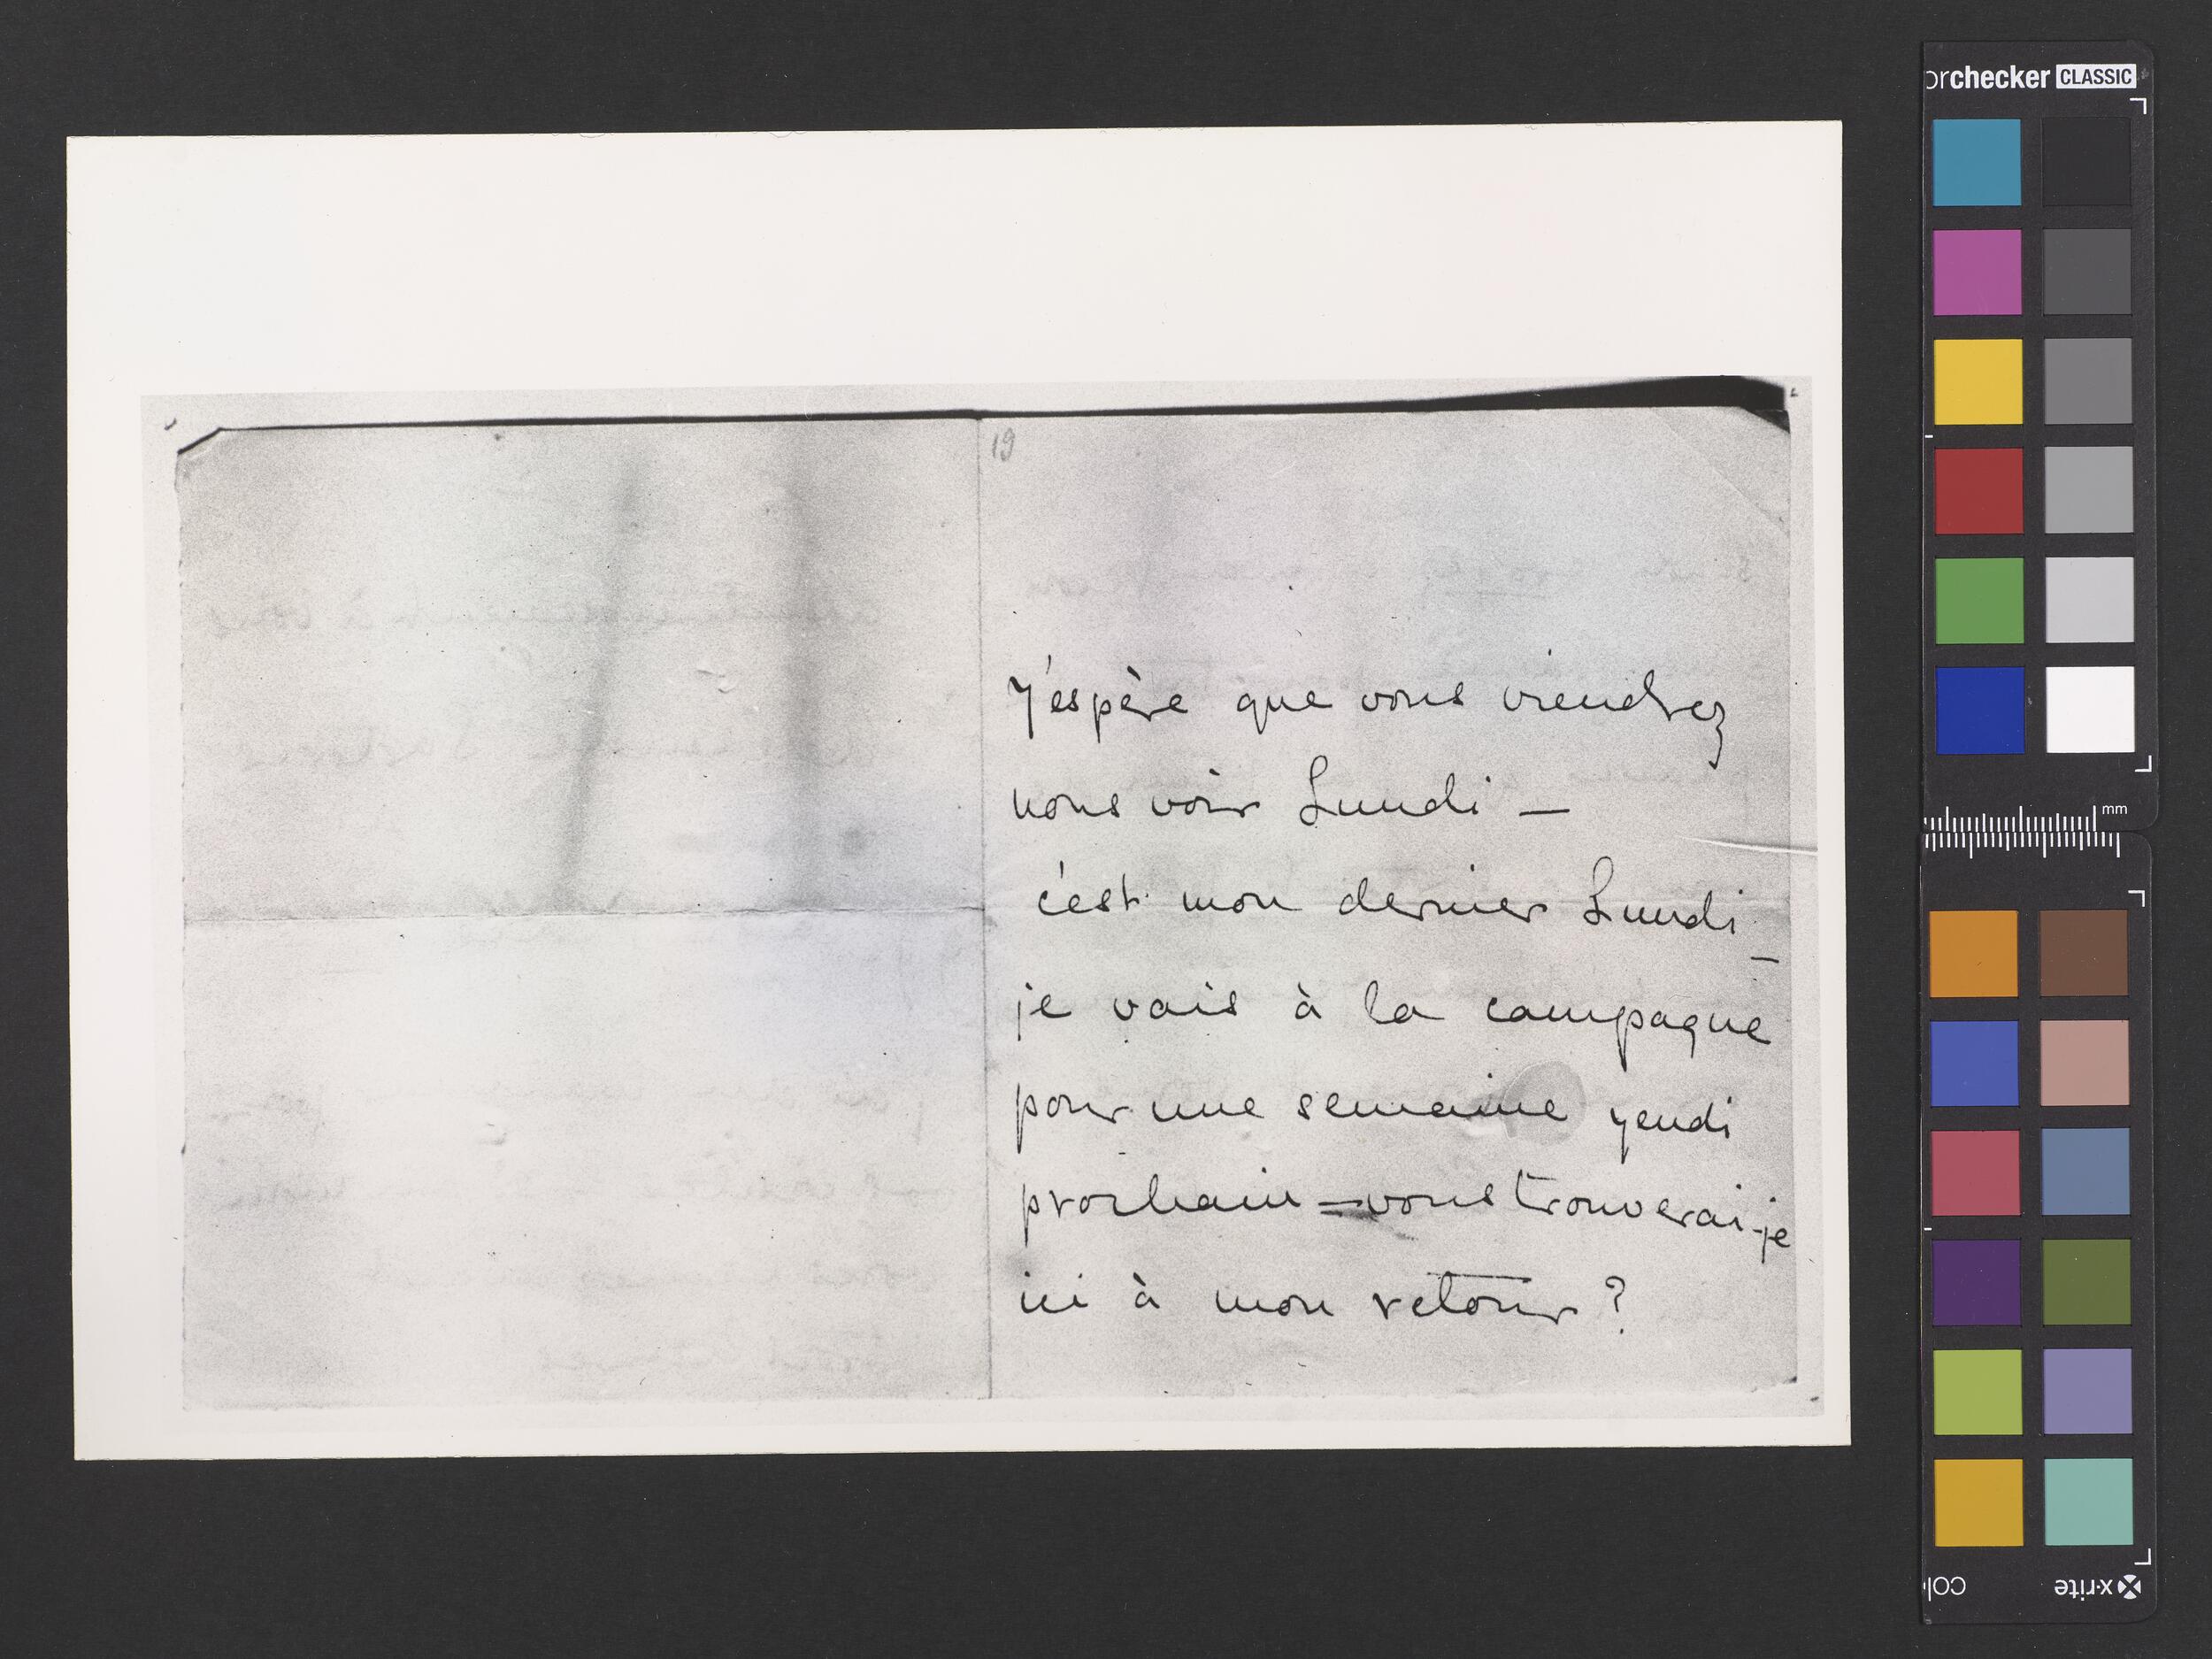 19
J'espère que vous viendrez
nous voir Lundi —
c'est mon dernier Lundi
—
je vais à la campagne
pour une semaine jeudi
prochain = vous trouverai-je
ici à mon retour ?
orchecker CLASSIC
mm
x-rite
col